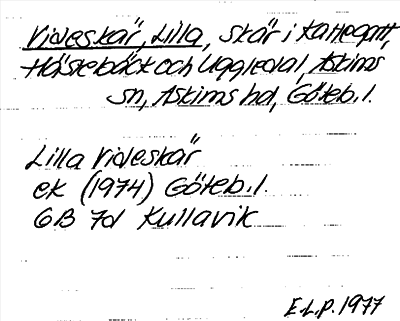 Videskär, Lilla, skär i Kattegatt,
Hästebäck och Uggledal, Askims
sn, Askims hd, Göteb.l.
Lilla Videskär
ek (1974) Göteb.l.
6B 7d Kullavik
E.L.P. 1977